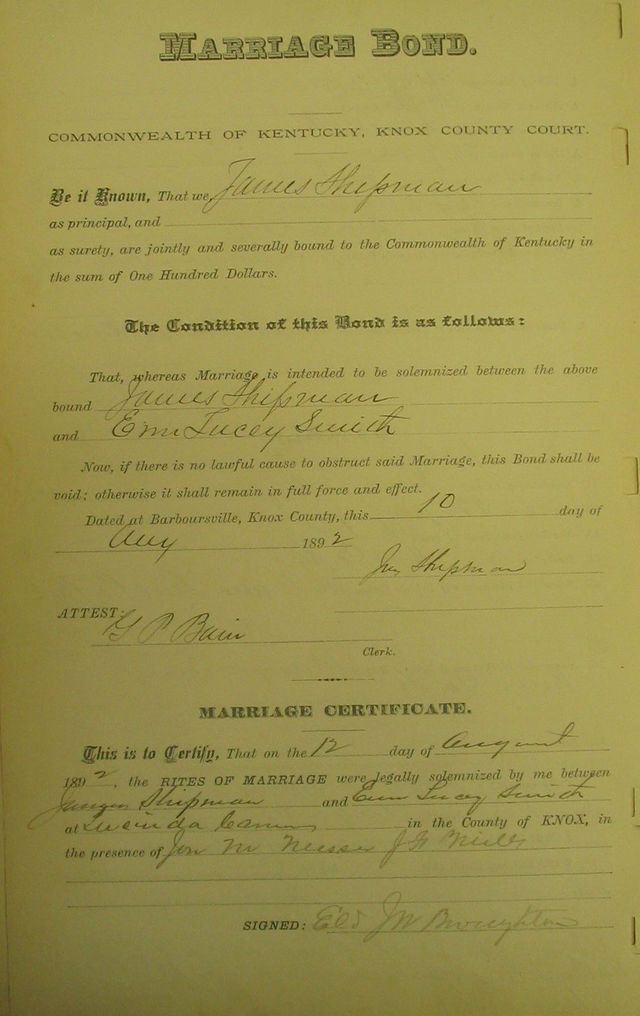 MARRIAGE BOND.
COMMONWEALTH OF KENTUCKY, KNOX COUNTY COURT.
Be it Known, That we, James Shipman
as principal, and
as surety, are jointly and severally bound to the Commonwealth of Kentucky in
the sum of One Hundred Dollars.
The Condition of this Bond is as follows:
That, whereas Marriage is intended to be solemnized between the above
bound James Shipman
and Emr Lucey Smith
Now, if there is no lawful cause to obstruct said Marriage, this Bond shall be
void; otherwise it shall remain in full force and effect.
Dated at Barboursville, Knox County, this 10 day of
Aug 1892
Shipman
ATTEST:
G P Bain
Clerk.
MARRIAGE CERTIFICATE.
This is to Certify, That on the 12 day of August
1892, the RITES OF MARRIAGE were legally solemnized by me between
Shipman and Emr Lucey Smith
at Lucinda in the County of KNOX, in
the presence of M Messer J H Mills
SIGNED: Eld J W Broughton